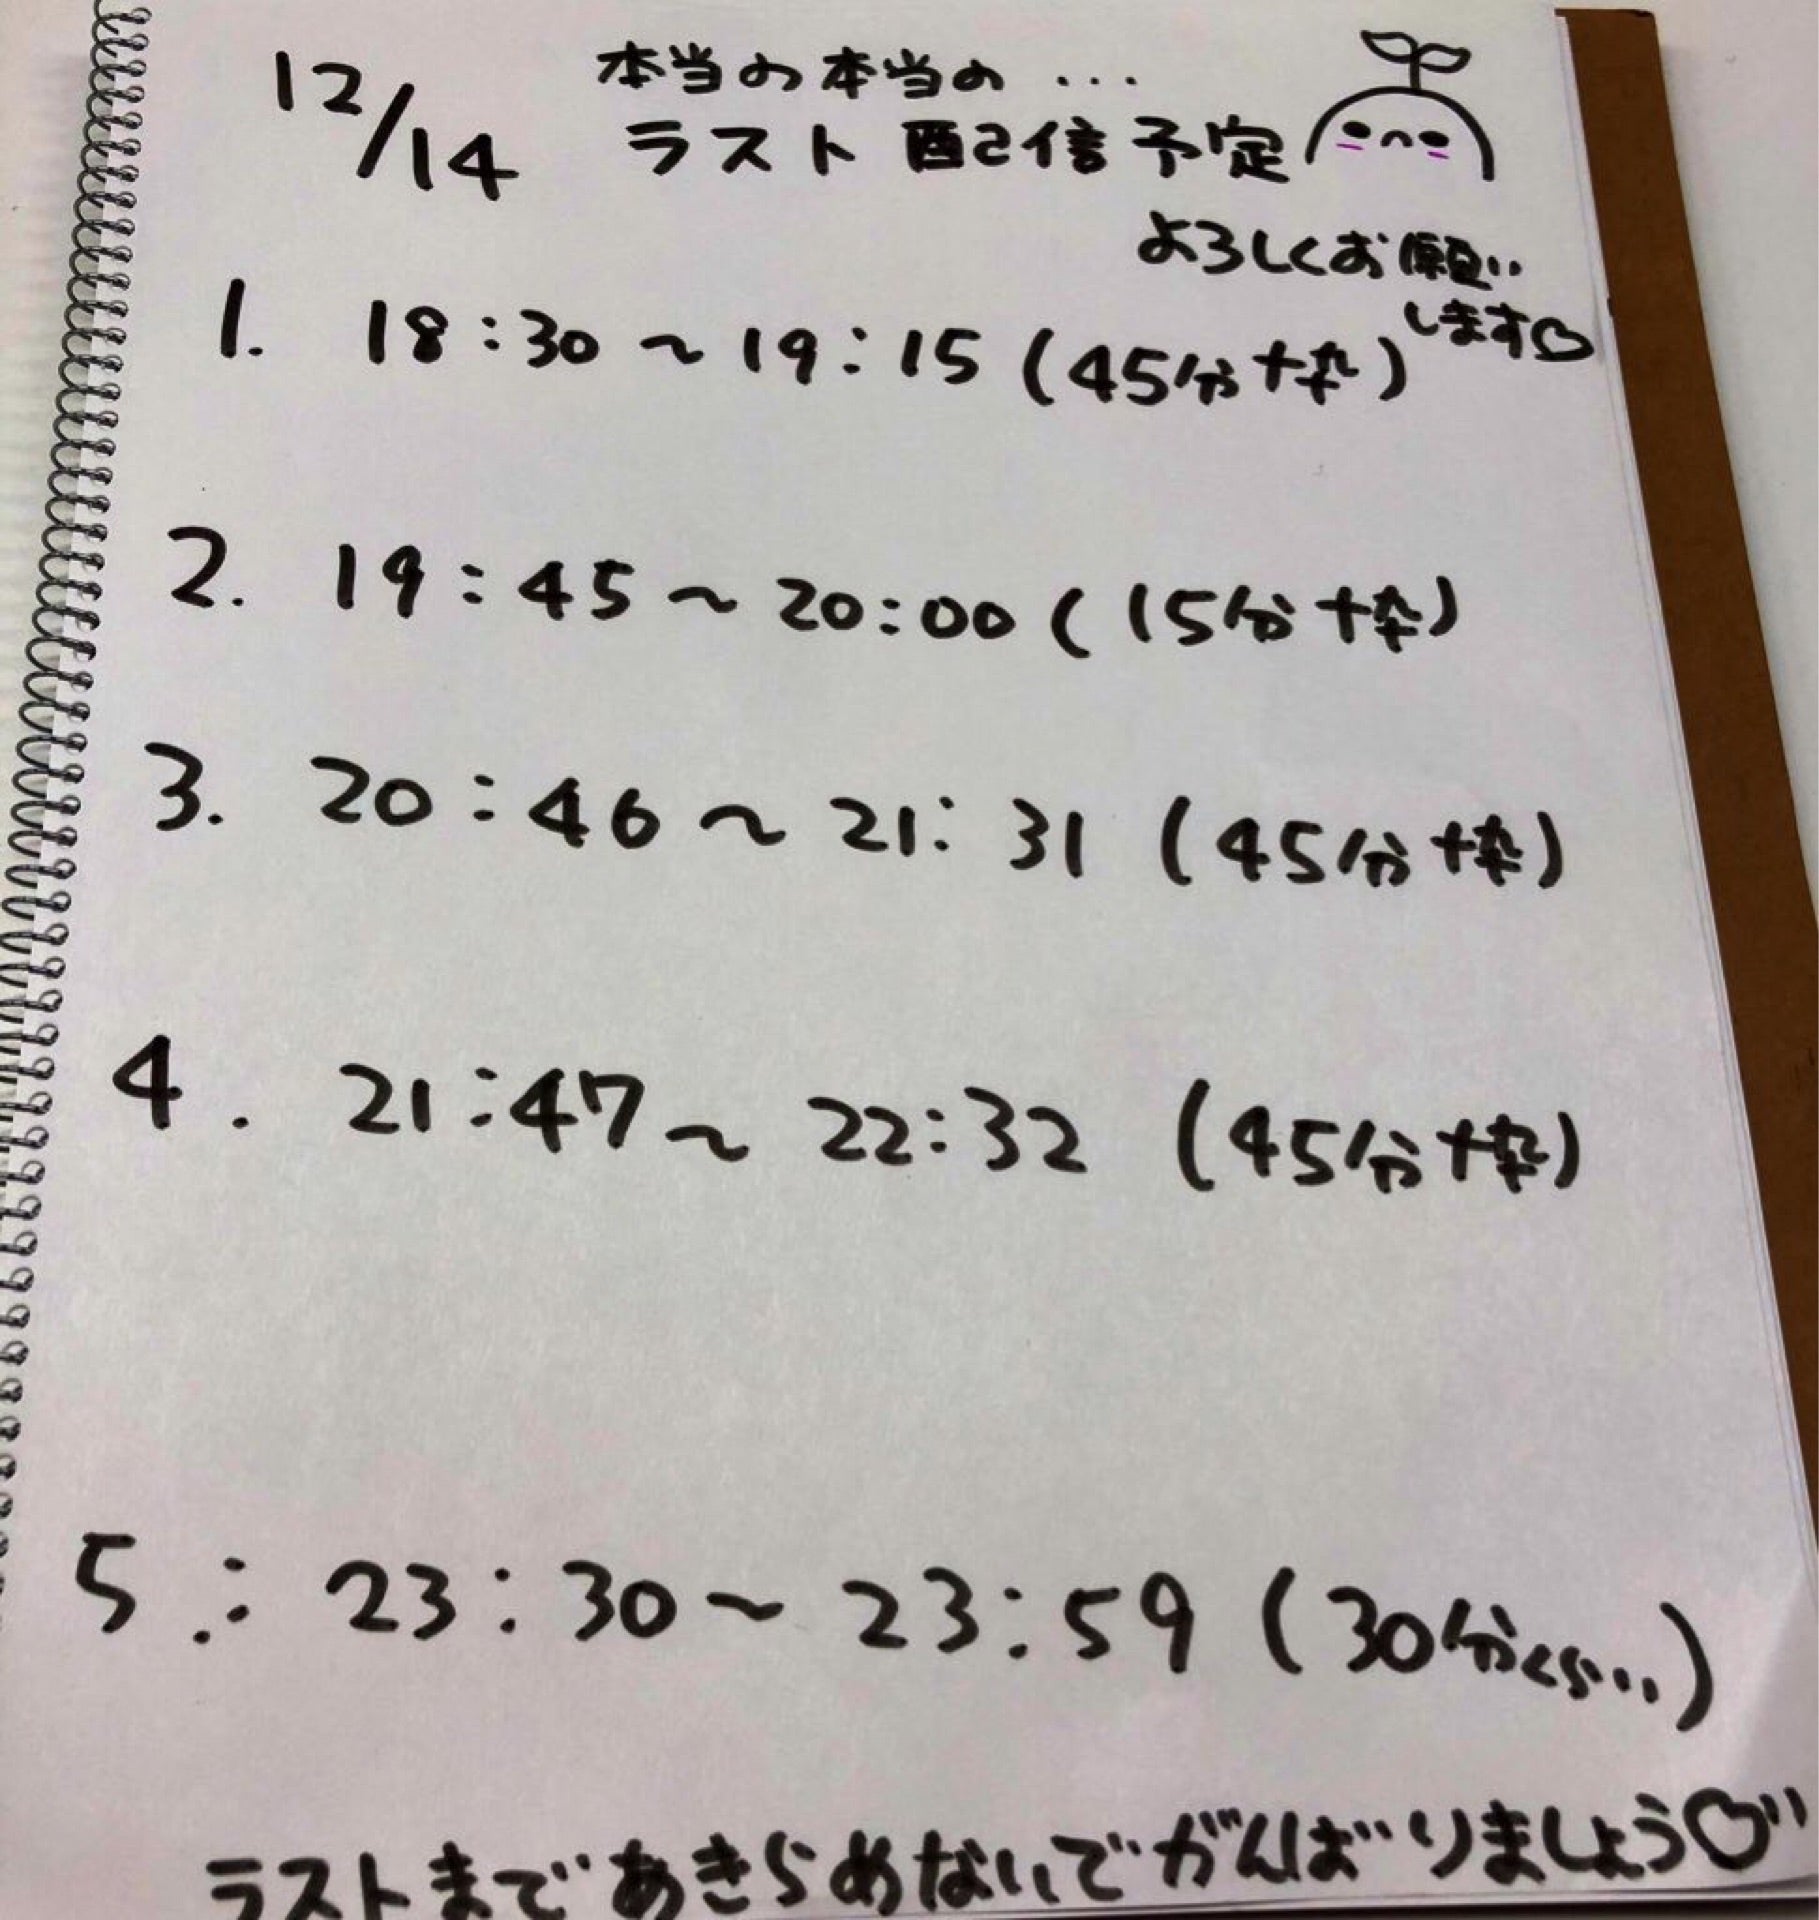 12/14
本当の本当の...
ラスト配信予定
よろしくお願い
します♡
1. 18:30〜19:15(45分枠)
2. 19:45〜20:00(15分枠)
3. 20:46〜21:31(45分枠)
4. 21:47〜22:32(45分枠)
5.: 23:30〜23:59(30分くらい...)
ラストまであきらめないでがんばりましょう♡"